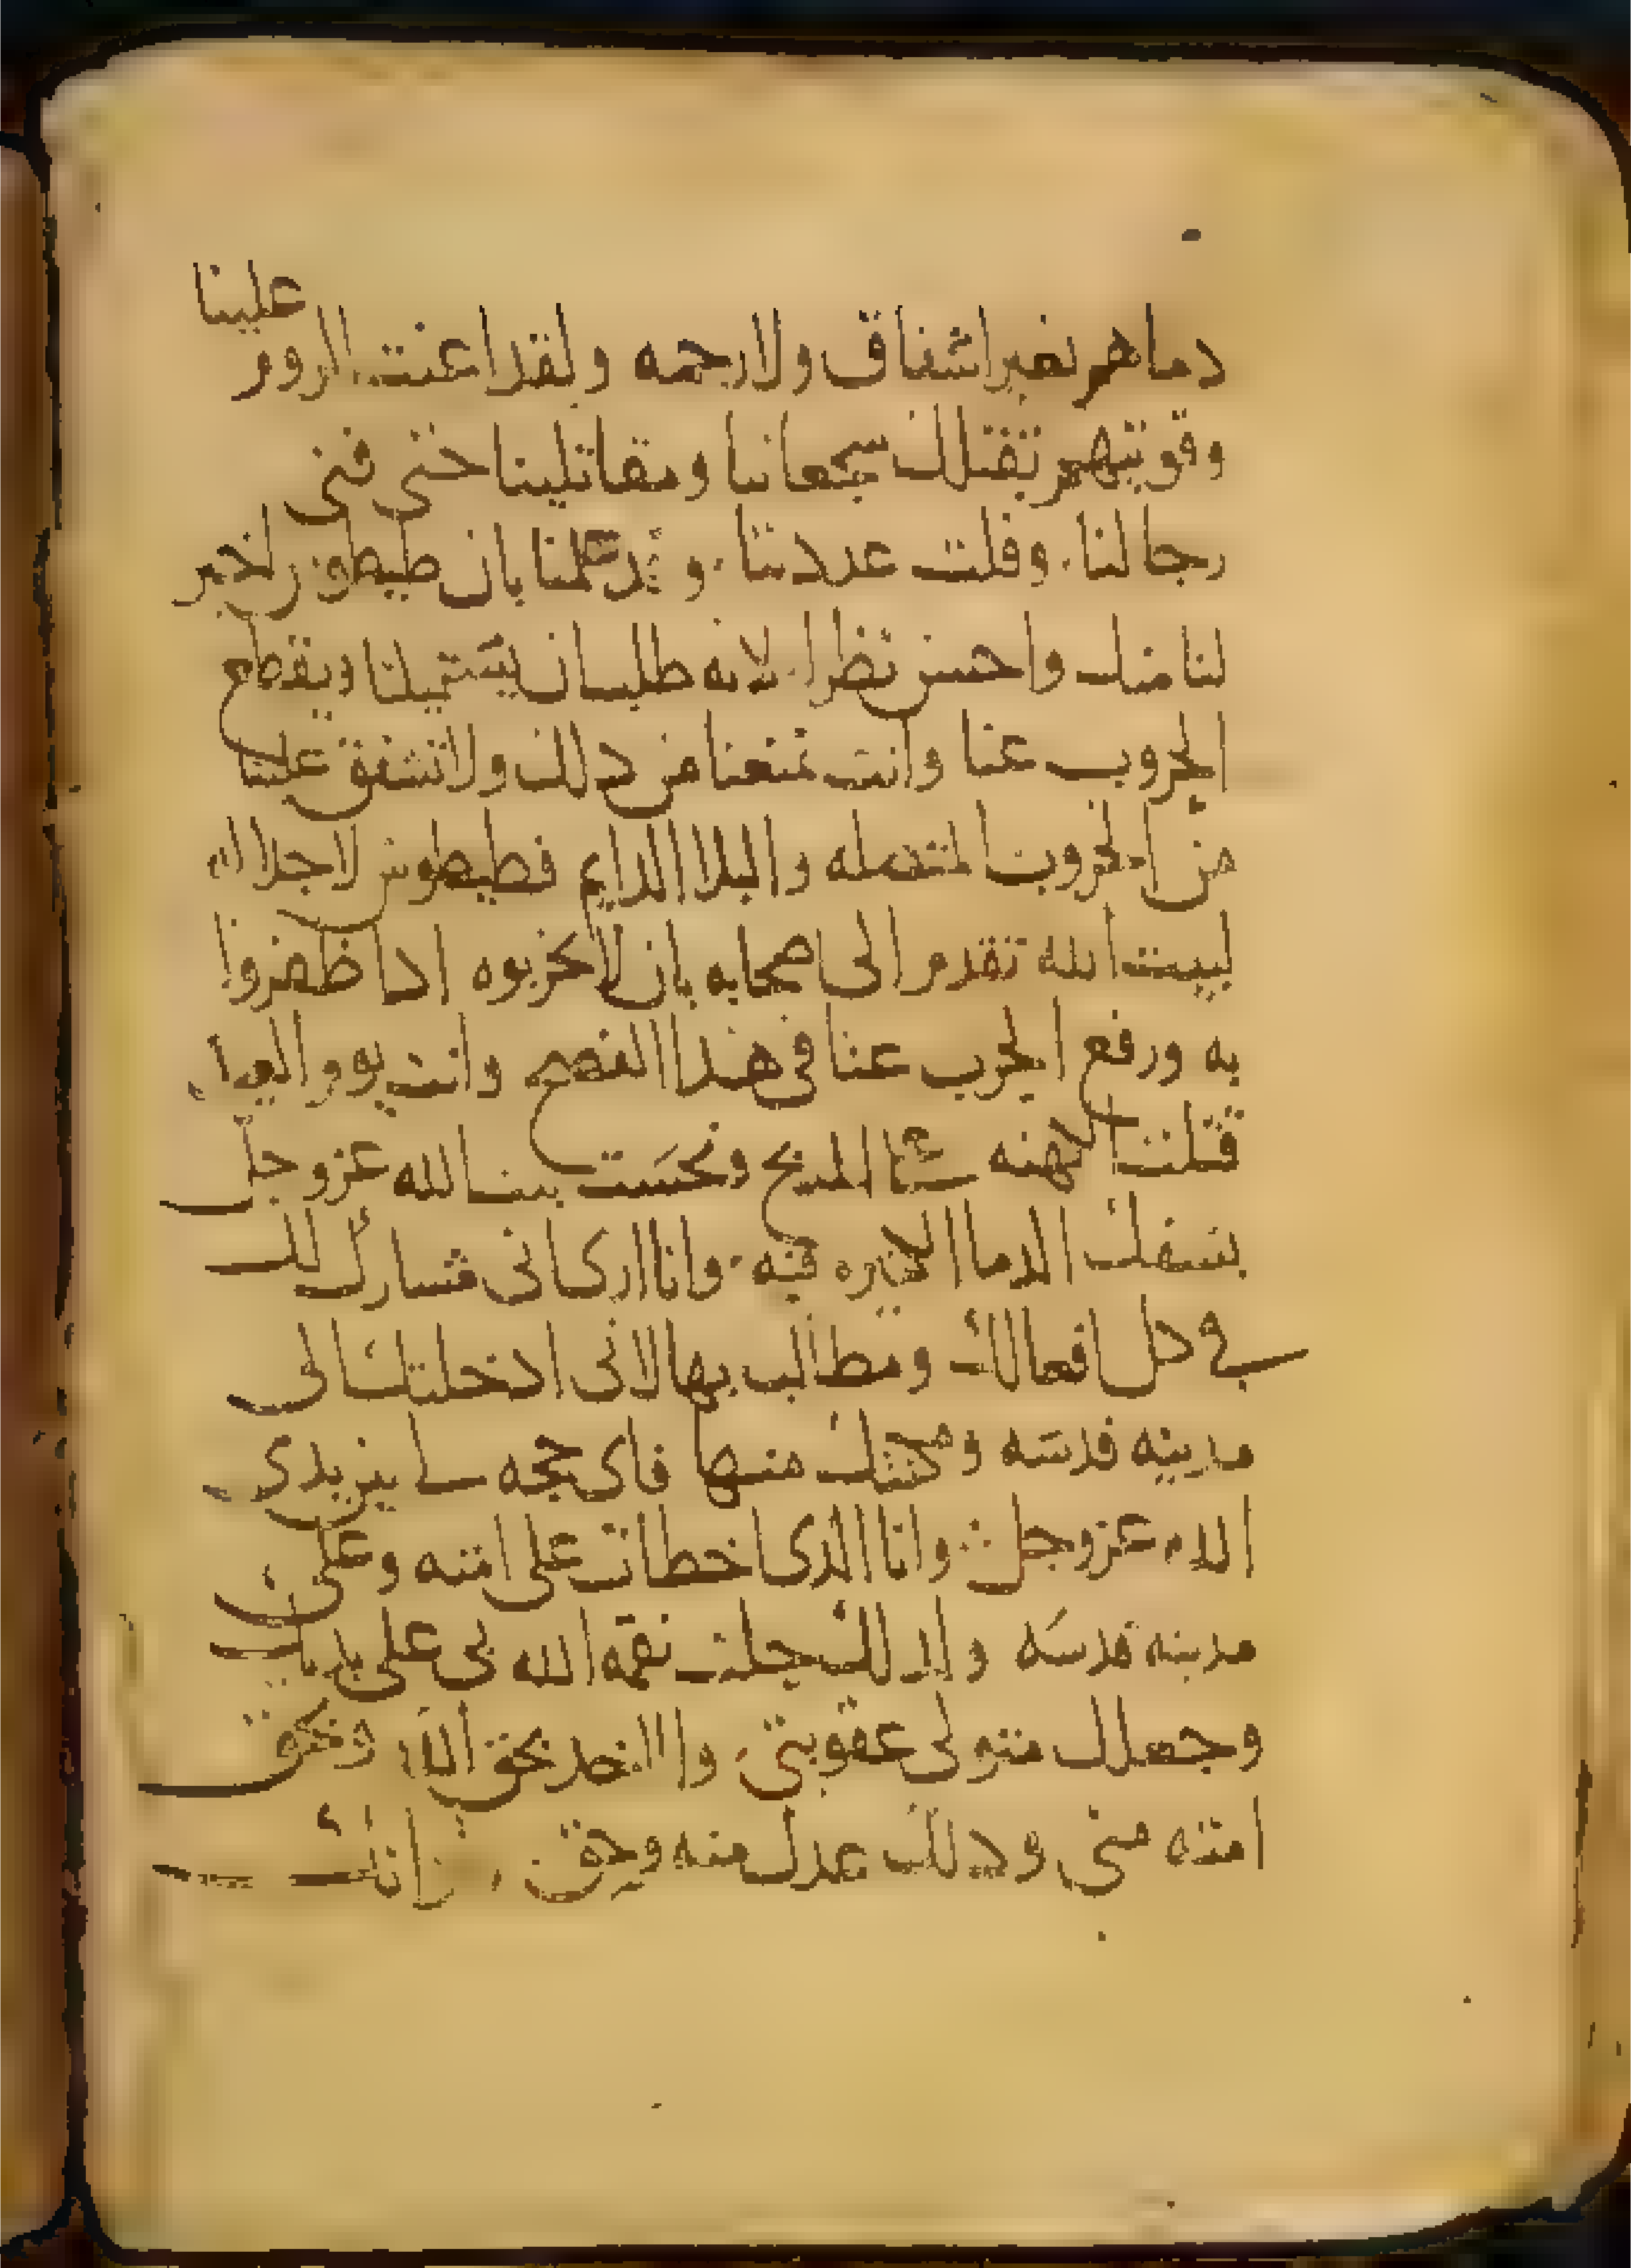 علينا
دماهم بغير اشفاق ولا رحمه ولقد اعنت الروم
وقويتهم بقتلك سجعاننا ومقاتلينا حتى فنى
رجالنا. وقلت عددنا. و علمنا بان طيطوس اخير
لنا منك واحسن نظرا. لانه طلب ان يستميلنا ويقطع
الحروب عنا وانت تمنعنا من دلك ولا تشفق علينا
من الحروب المتصله والبلا الدايم فطيطوس لاجلاله
لبيت الله تقدم الى اصحابه بان لا يخربوه ادا ظفروا
به ورفع الحرب عنا في هدا الفصح وانت يوم العيد
قتلت الكهنه على المدبح ونجست بيت الله عز وجل
بسفك الدما الكثيره فيه. وانا ارى انى مشارك لك
في كل افعالك ومطالب بها لانى ادخلتك الى
مدينه قدسه ومكنتك منها فاى حجه لى بين يدى
الله عز وجل وانا الدى اخطات على امته وعلى
مدينه قدسه ولدلك جلت نقمه الله بى على يديك
وجعلك متولى عقوبتى والاخد بحق الله وبحق
امته منى ودلك عدل منه وحق لانك